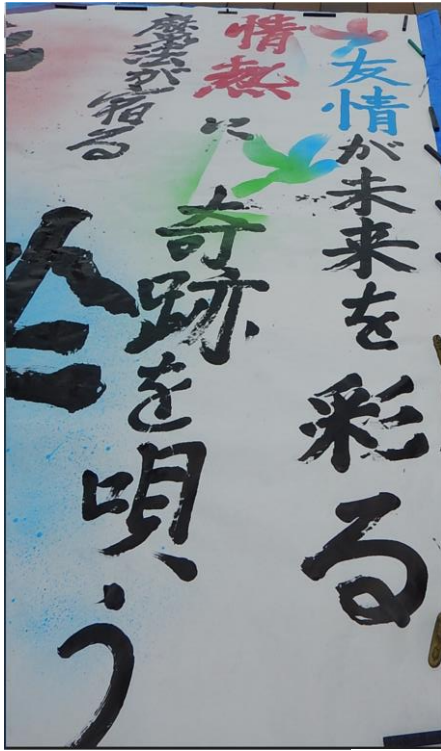 友情が未来を彩る
情熱に奇跡を唄う
魔法が宿る